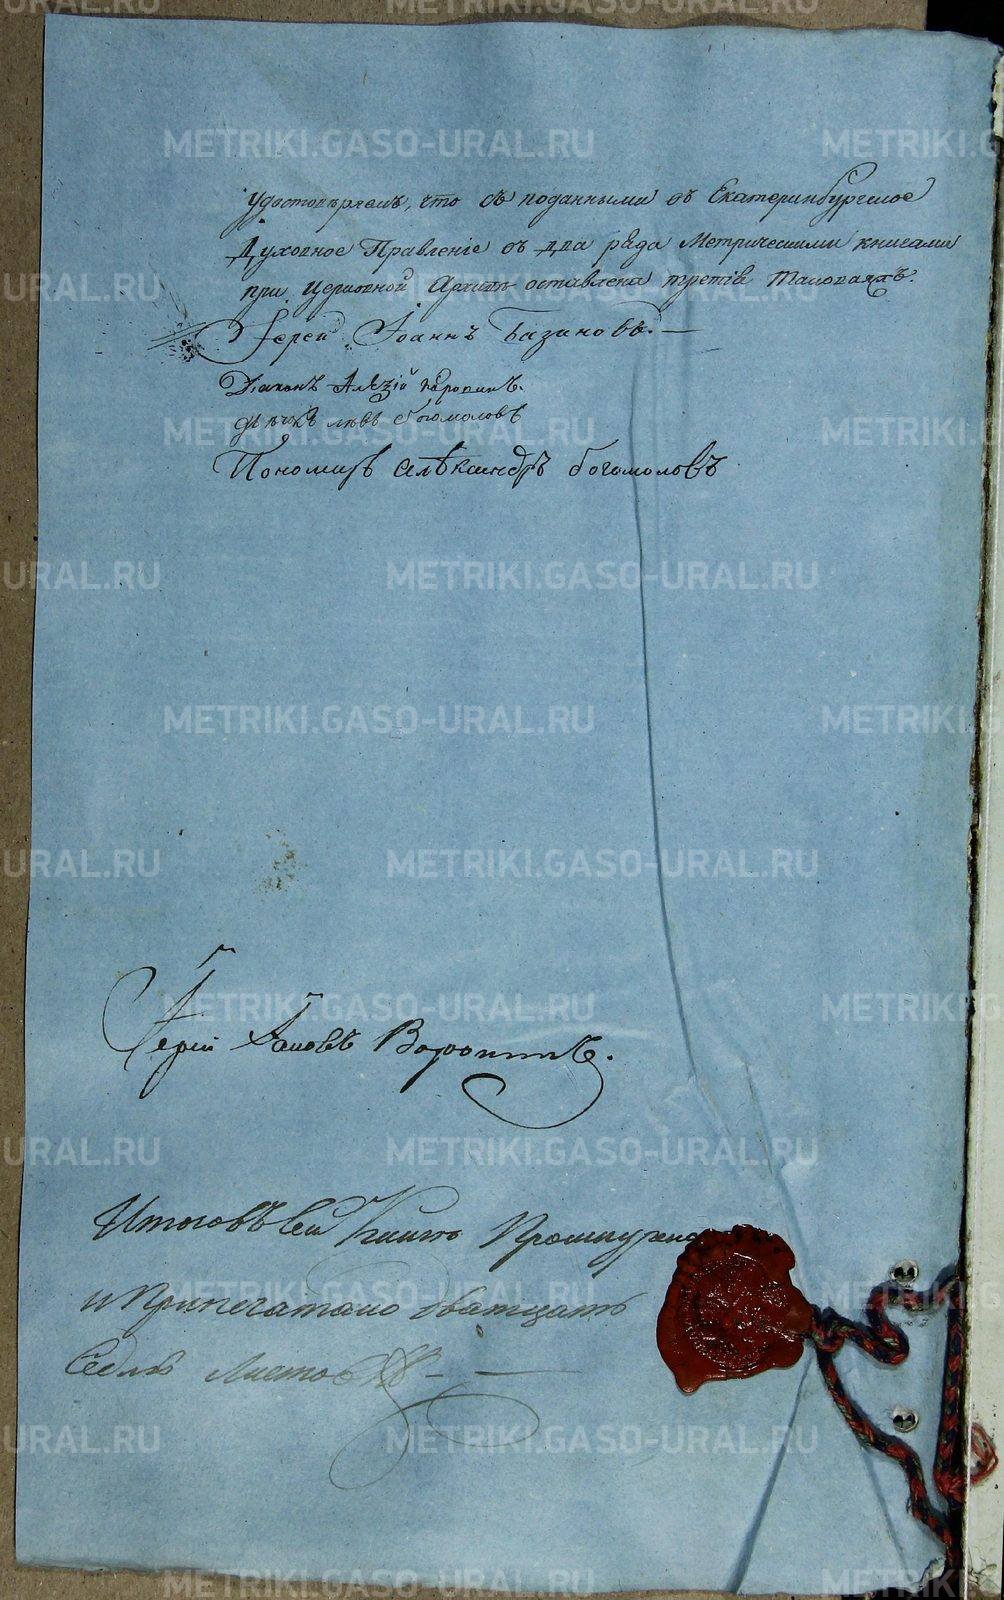 удостоверяемъ, что съ поданными въ Екатеринбургское
Духовное Правленіе въ два ряда Метрическими книгами
при Церковной Архивѣ оставлена третія таковаяжъ.
Іерей Іоаннъ Базановъ.
Діаконъ Алезій
дьячекъ левъ богомоловъ
Пономарь алѣксандръ богомоловъ
Іерей Іаковъ
Итого въ сей книгѣ Прошнуровано
и припечатано дватцать
Седмь листовъ
METRIKI.GASO-URAL.RU